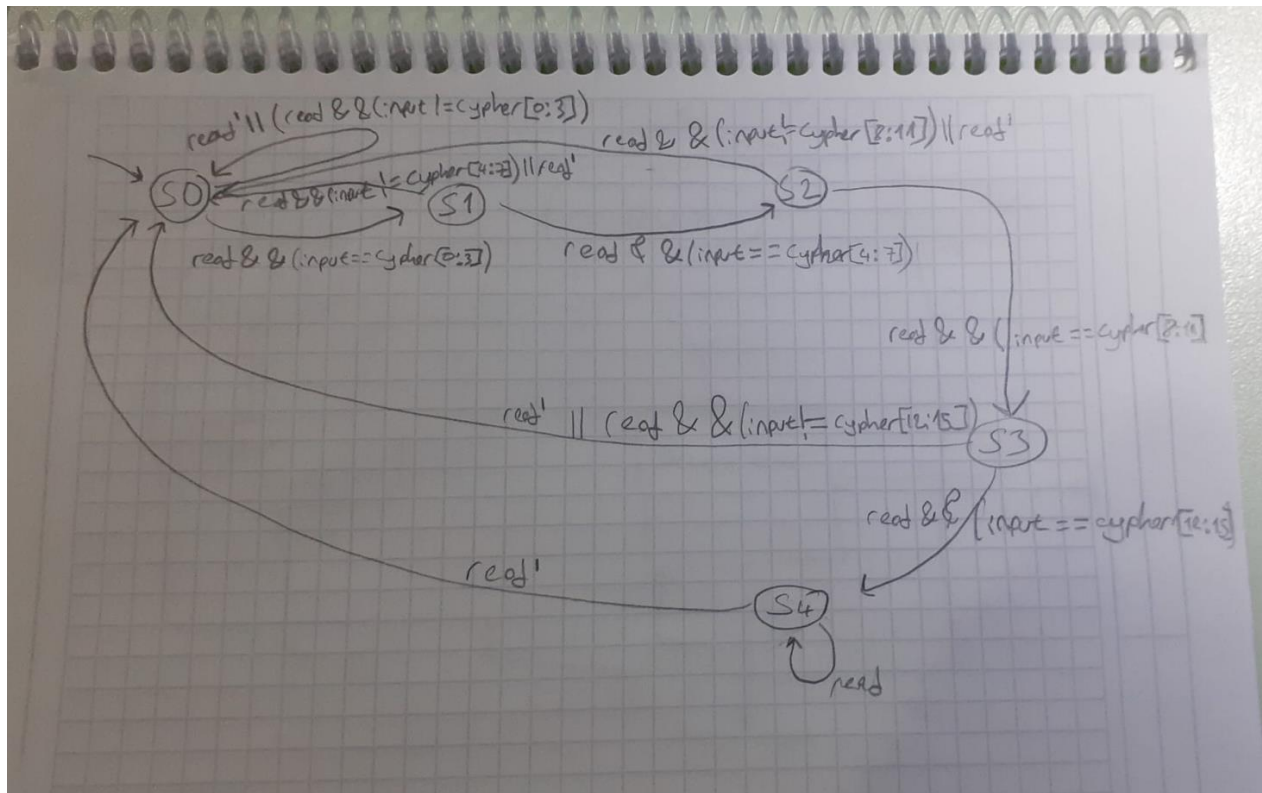 read' || (read & &(input != cypher[0:3])
read & &(input != cypher[8:11]) || read'
read & &(input != cypher[4:7]) || read'
S0
S1
S2
read & &(input == cypher[0:3])
read & &(input == cypher[4:7])
read & &(input == cypher[8:11]
read' || read & &(input != cypher[12:15])
S3
read & & (input == cypher[12:15]
read'
S4
read